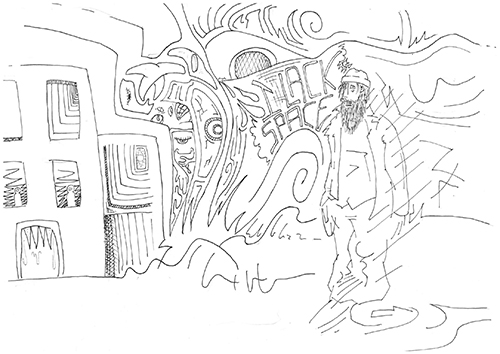 HACK
SPACE